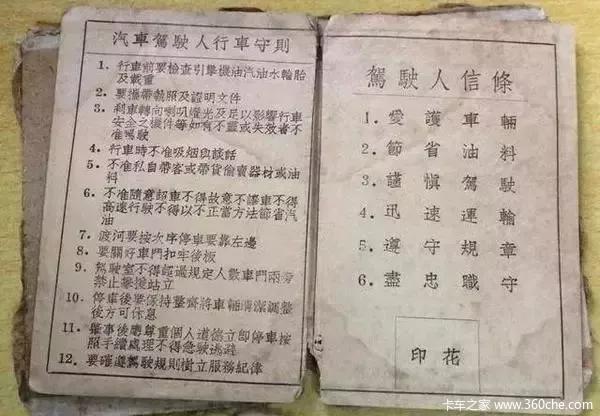 汽車駕駛人行車守則
1. 行車前要檢查引擎機油汽油水輪胎
及載重
2. 要攜帶執照及證明文件
3. 剎車轉向喇叭燈光及足以影響行車
安全之機件等如有不靈或失效者不
准駕駛
4. 行車時不准吸烟與談話
5. 不准私自帶客或帶貨偷賣器材或油
料
6. 不准隨意超車不得故意不讓車不得
高速行駛不得以不正當方法節省汽
油
7. 渡河要按次序停車要靠左邊
8. 要關好車門扣牢後板
9. 駕駛室不得超過規定人數車門兩旁
禁止攀援站立
10. 停車後要保持整齊將車輛清潔調整
後方可休息
11. 肇事後應尊重個人道德立即停車按
照手續處理不得急駛逃避
12. 要確遵駕駛規則樹立服務紀律
駕駛人信條
1. 愛護車輛
2. 節省油料
3. 謹慎駕駛
4. 迅速運輸
5. 遵守規章
6. 盡忠職守
印花
(1)
卡车之家 www.360che.com